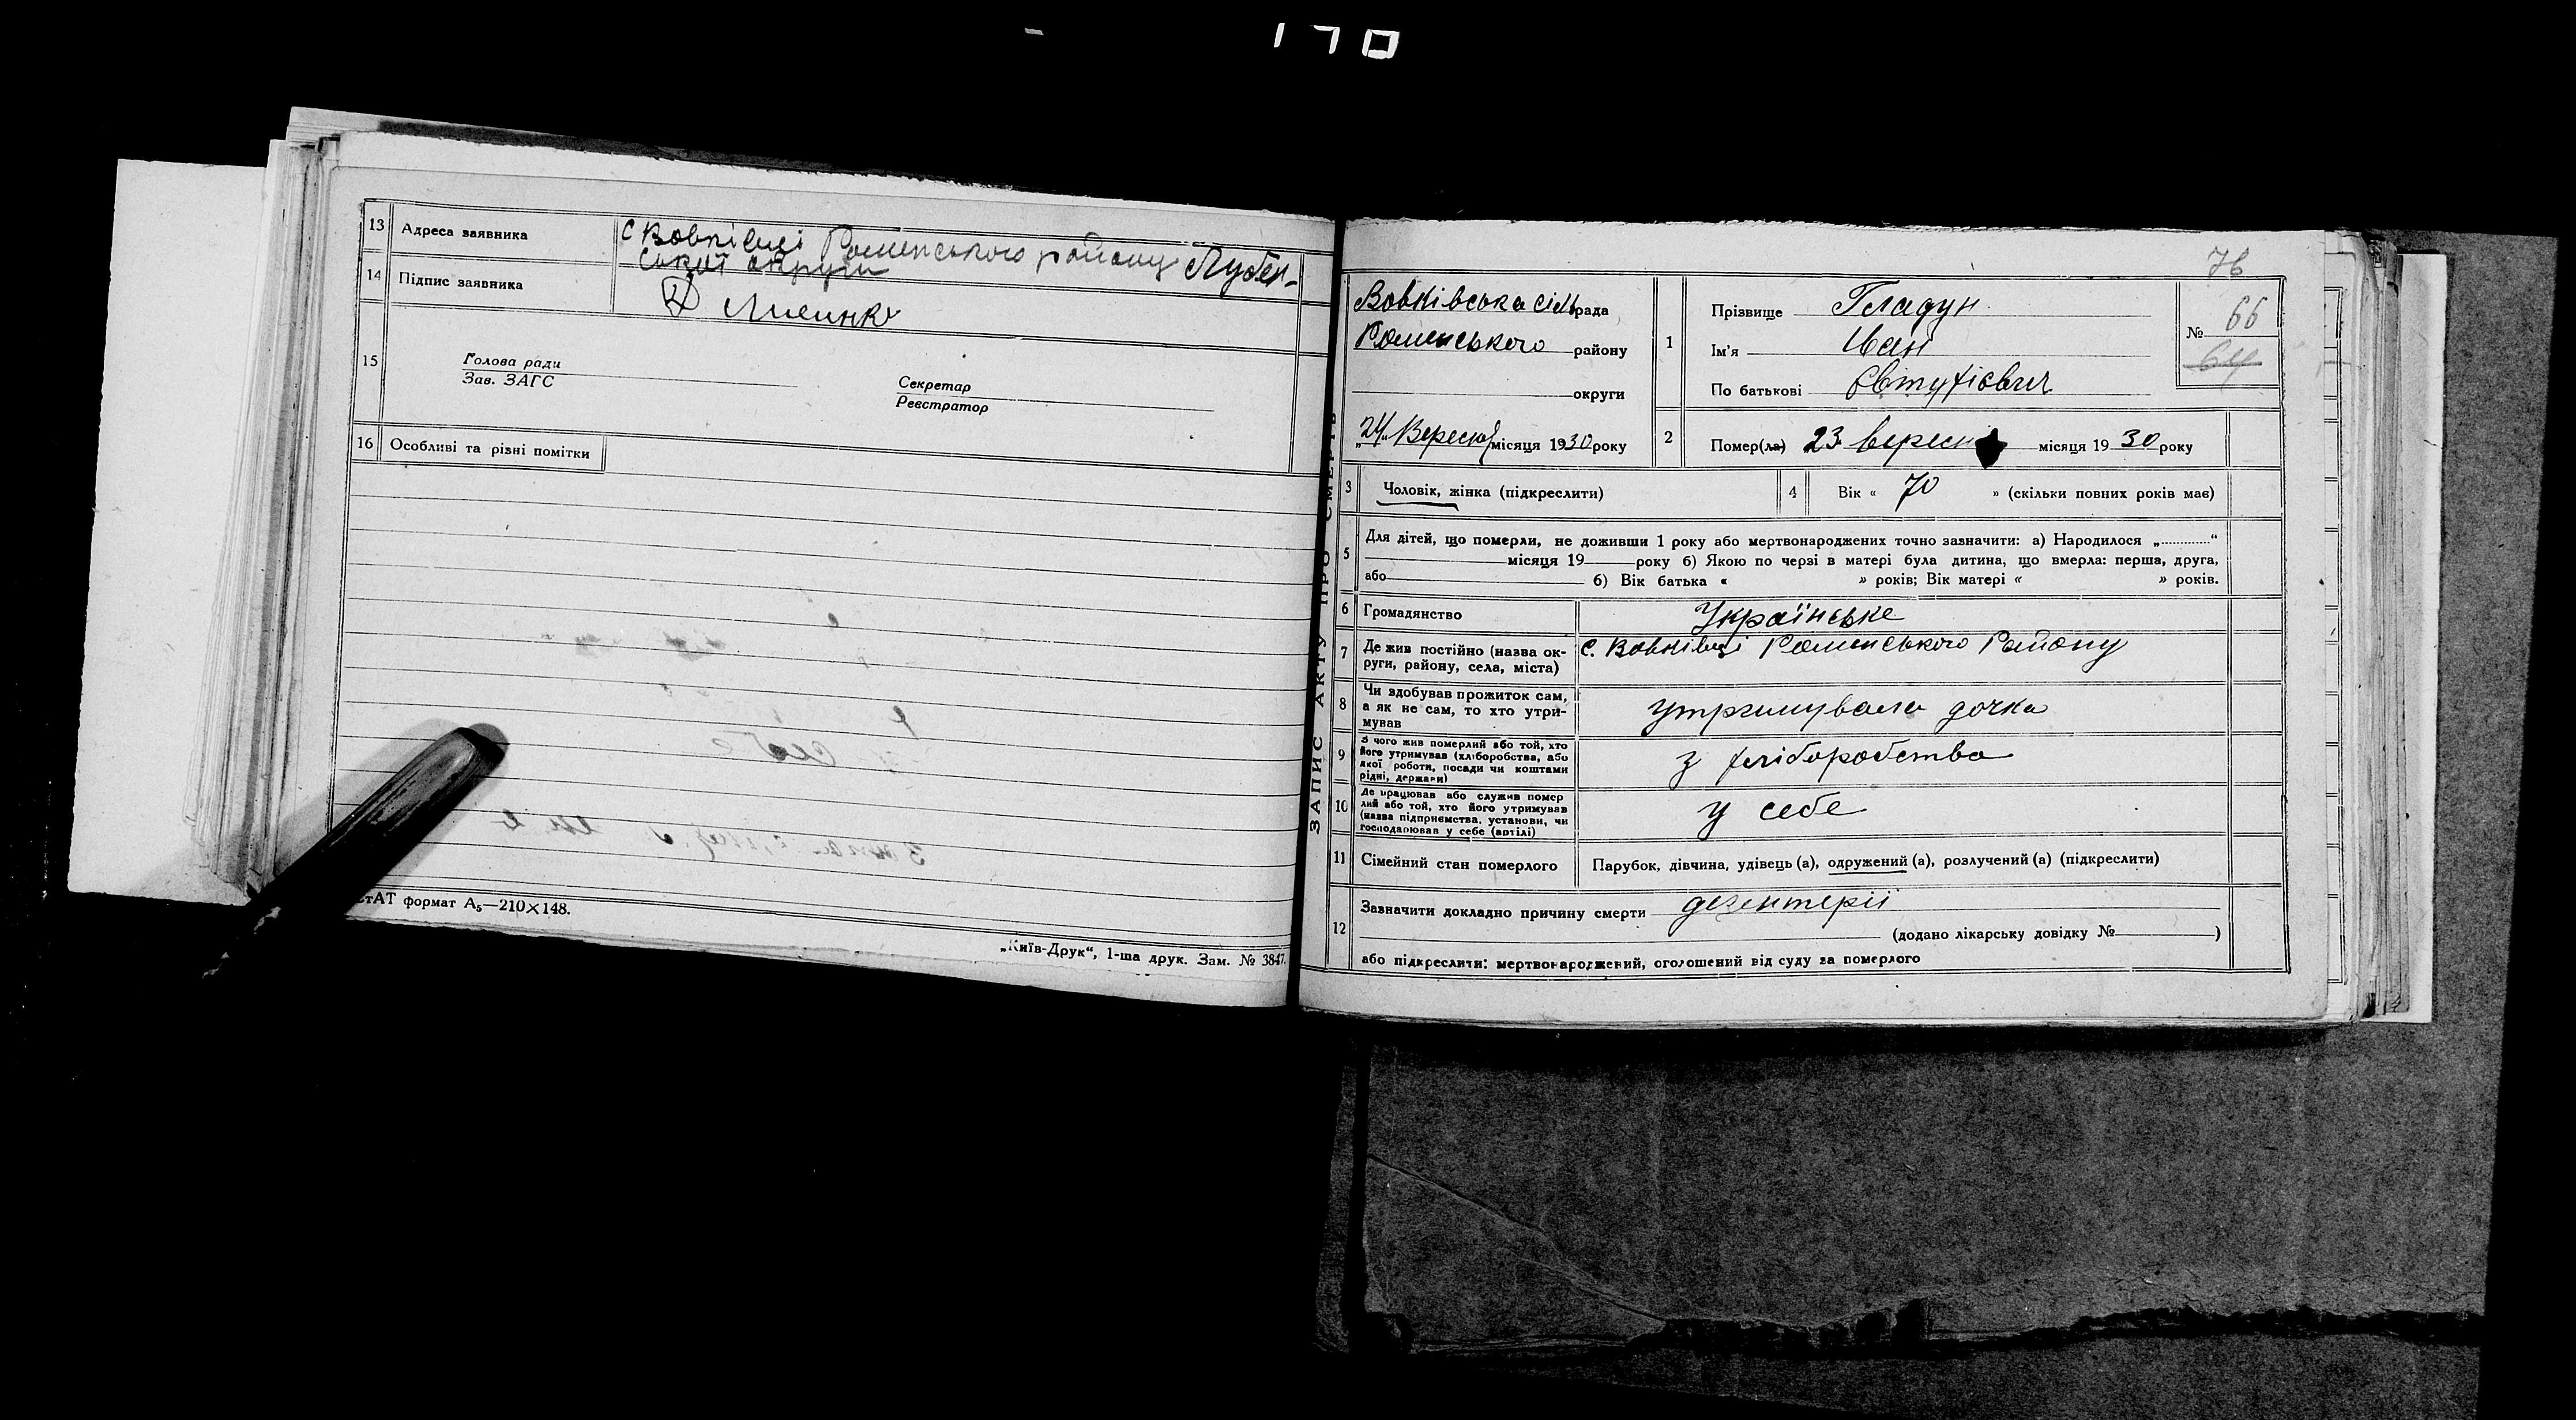 170
13 Адреса заявника с Вовківці Роменського району Лубен-
ської округи
14 Підпис заявника Лисинк
15 Голова ради
Зав. ЗАГС
Секретар
Реєстратор
16 Особливі та різні помітки
стАТ формат А5—210×148.
„Київ-Друк“, 1-ша друк. Зам. № 3847.
ЗАПИС АКТУ ПРО СМЕРТЬ
76
Вовківська сільрада
Роменського району
округи
„24“ Вересня місяця 1930 року
1 Прізвище Гладун
Ім'я Іван
По батькові Євтухієвич
№ 66
64
2 Помер(ла) 23 вересн місяця 1930 року
3 Чоловік, жінка (підкреслити)
4 Вік « 70 » (скільки повних років має)
5 Для дітей, що померли, не доживши 1 року або мертвонароджених точно зазначити: а) Народилося „............“
місяця 19 року б) Якою по черзі в матері була дитина, що вмерла: перша, друга,
або б) Вік батька « » років; Вік матері « » років.
6 Громадянство Українське
7 Де жив постійно (назва ок-
руги, району, села, міста) с. Вовківці Роменського Району
8 Чи здобував прожиток сам,
а як не сам, то хто утри-
мував утримувала дочка
9 З чого жив померлий або той, хто
його утримував (хліборобства, або
якої роботи, посади чи коштами
рідні, держави) з хліборобства
10 Де працював або служив помер
лий або той, хто його утримував
(назва підприємства, установи, чи
господарював у себе (артілі) у себе
11 Сімейний стан померлого Парубок, дівчина, удівець (а), одружений (а), розлучений (а) (підкреслити)
12 Зазначити докладно причину смерти дезентерії
(додано лікарську довідку № )
або підкреслити: мертвонароджений, оголошений від суду за померлого